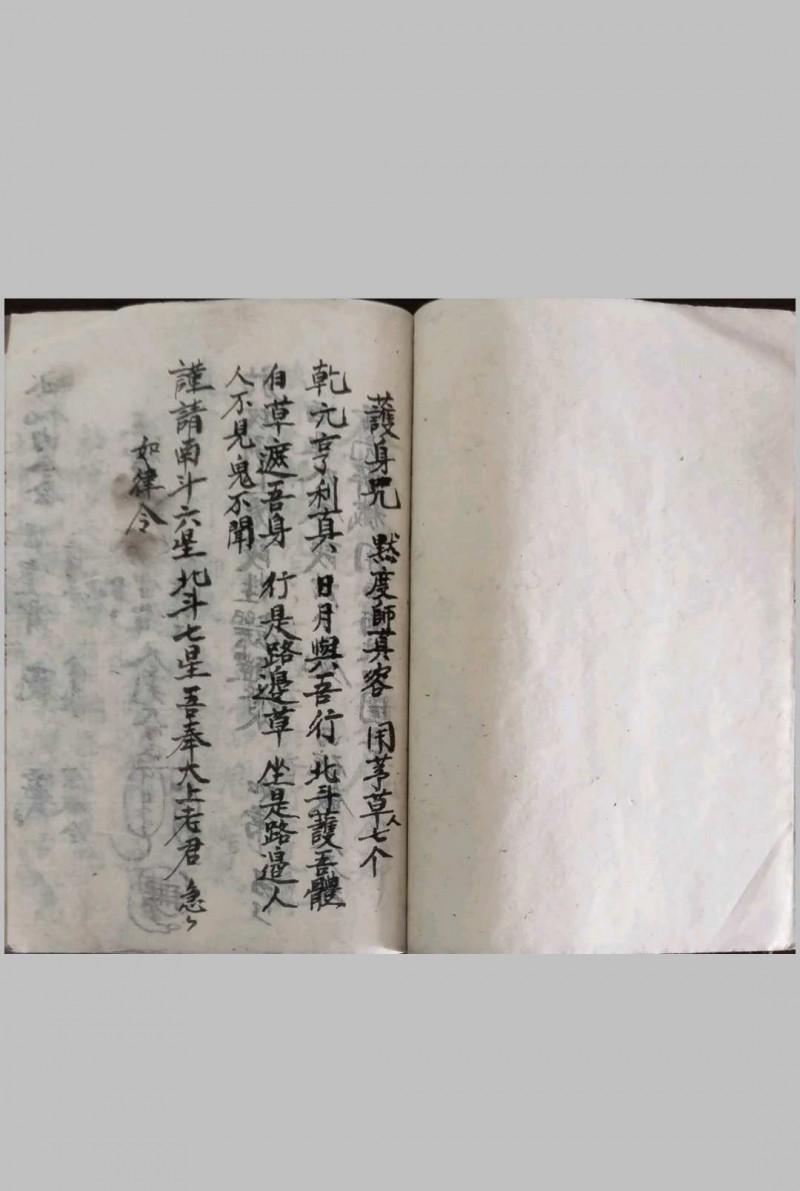 護身咒 黙度師真容 用茅草人七个
乾元亨利真 日月與吾行 北斗護吾體
白草遮吾身 行是路邊草 坐是路邉人
人不見鬼不聞
謹請南斗六星北斗七星吾奉大上老君 急々
如律令